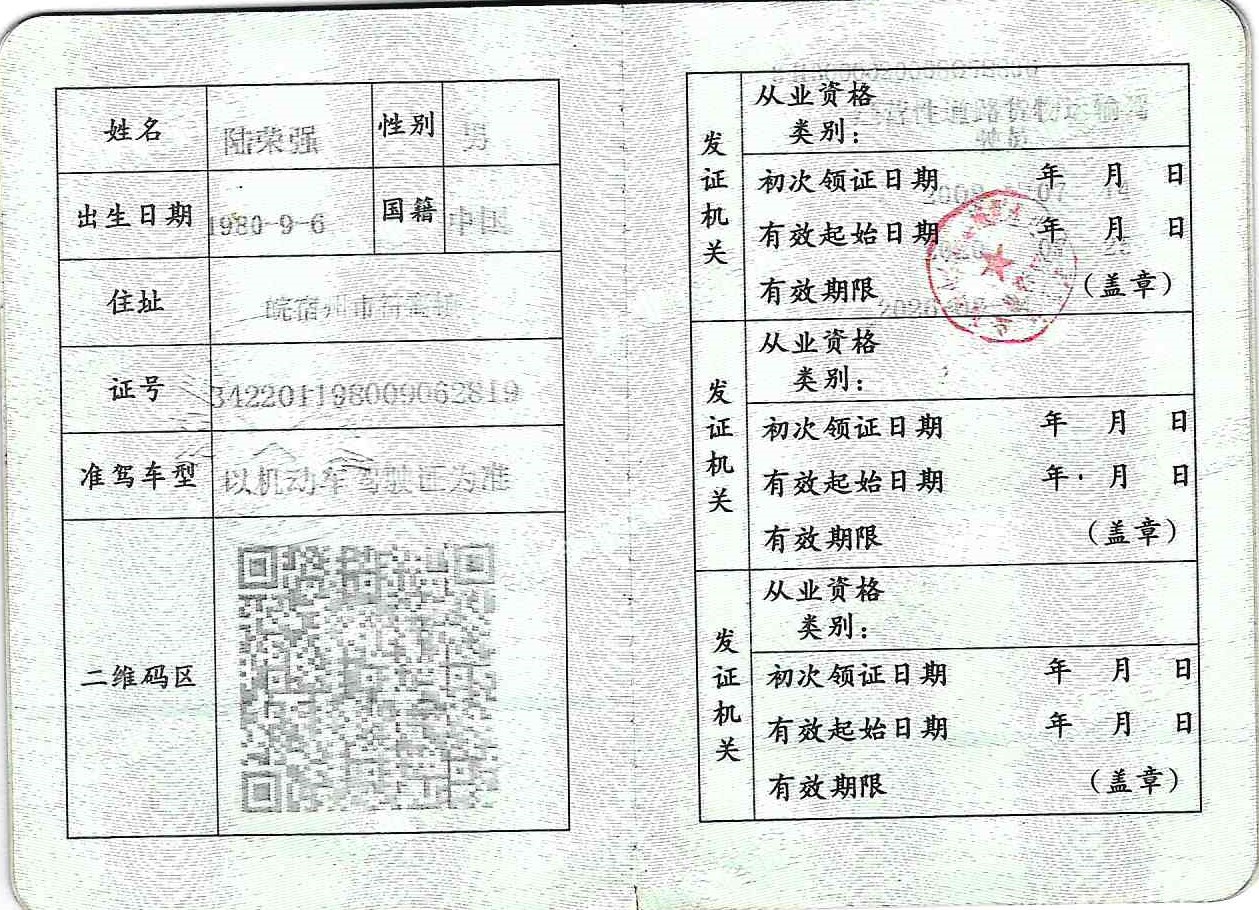 姓名 陆荣强 性别 男
出生日期 1980-9-6 国籍 中国
住址 皖宿州市
证号 342201198009062819
准驾车型 以机动车驾驶证为准
二维码区
发证机关
从业资格类别：经营性道路货物运输驾驶员
初次领证日期 年 月 日
有效起始日期 年 月 日
有效期限 （盖章）
发证机关
从业资格类别：
初次领证日期 年 月 日
有效起始日期 年 月 日
有效期限 （盖章）
发证机关
从业资格类别：
初次领证日期 年 月 日
有效起始日期 年 月 日
有效期限 （盖章）